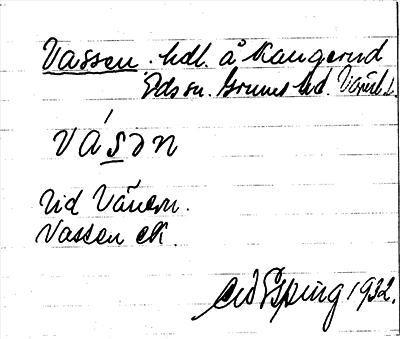 Vassen. hdl. å Kangerud
Eds sn. Grums hd. Värml.
vásən
Vid Vänern.
Vassen ek.
1932.